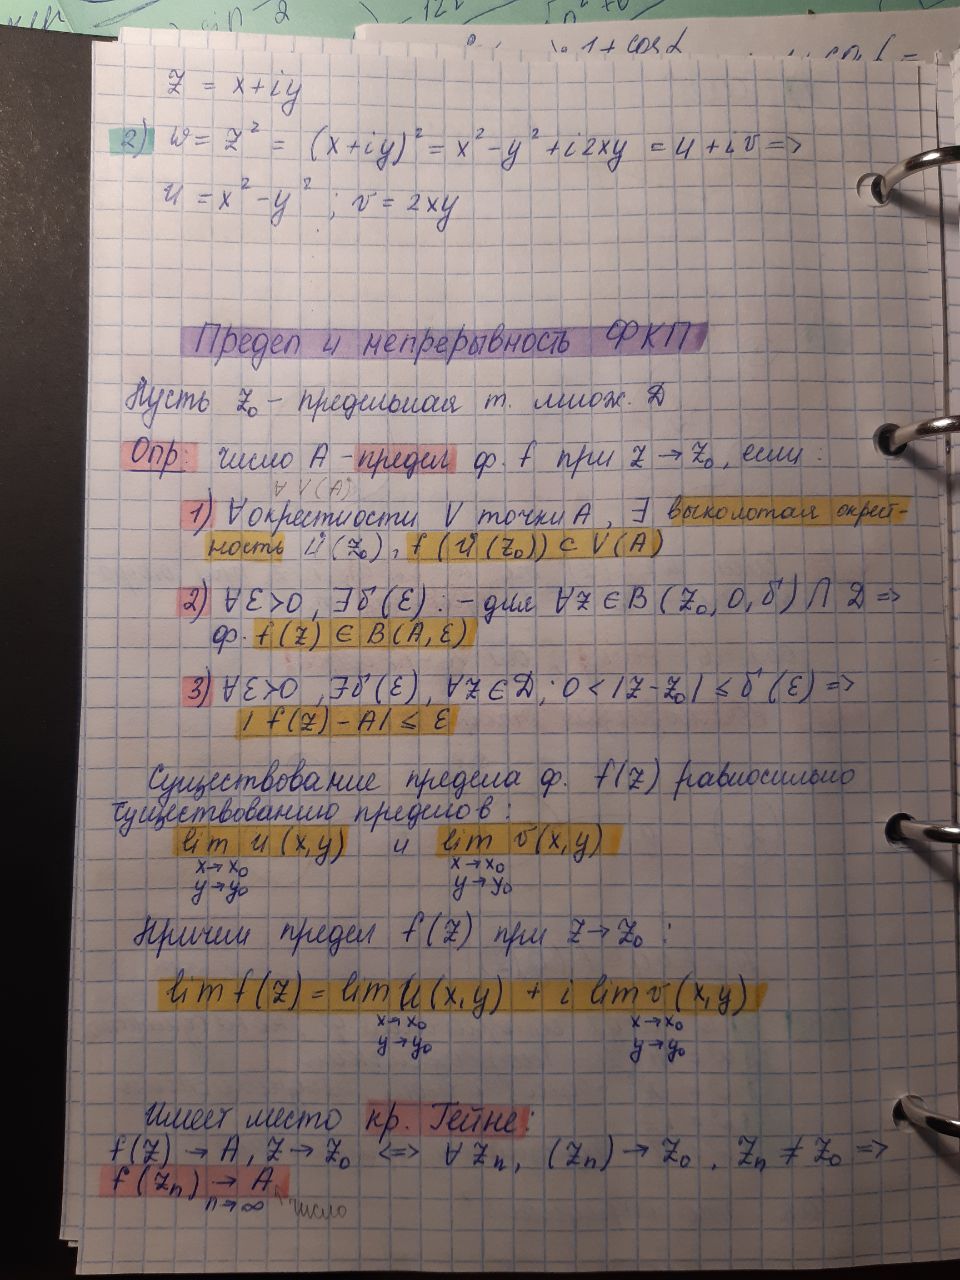 z = x+iy
2) w = z² = (x+iy)² = x²-y²+i2xy = u+iv =>
u = x²-y² ; v = 2xy
Предел и непрерывность ФКП
Пусть z₀ - предельная т. множ. D
Опр: число A - предел ф. f при z→z₀, если:
∀ V(A)
1) ∀ окрестности V точки A, ∃ выколотая окрест-
ность Ů(z₀), f(Ů(z₀)) ⊂ V(A)
2) ∀ε<0, ∃δ(ε) : - для ∀z∈B(z₀,0,δ) ∩ D =>
ф. f(z) ∈ B(A,ε)
3) ∀ε<0, ∃δ(ε), ∀z∈D; 0<|z-z₀|≤δ(ε) =>
|f(z)-A|≤ε
Существование предела ф. f(z) равносильно
существованию пределов:
lim u(x,y) и lim v(x,y)
x→x₀ x→x₀
y→y₀ y→y₀
Причем предел f(z) при z→z₀:
lim f(z) = lim u(x,y) + i lim v(x,y)
x→x₀ x→x₀
y→y₀ y→y₀
Имеет место кр. Гейне:
f(z) → A, z→z₀ <=> ∀ zₙ, (zₙ)→z₀, zₙ ≠ z₀ =>
f(zₙ) → A
n→∞ число